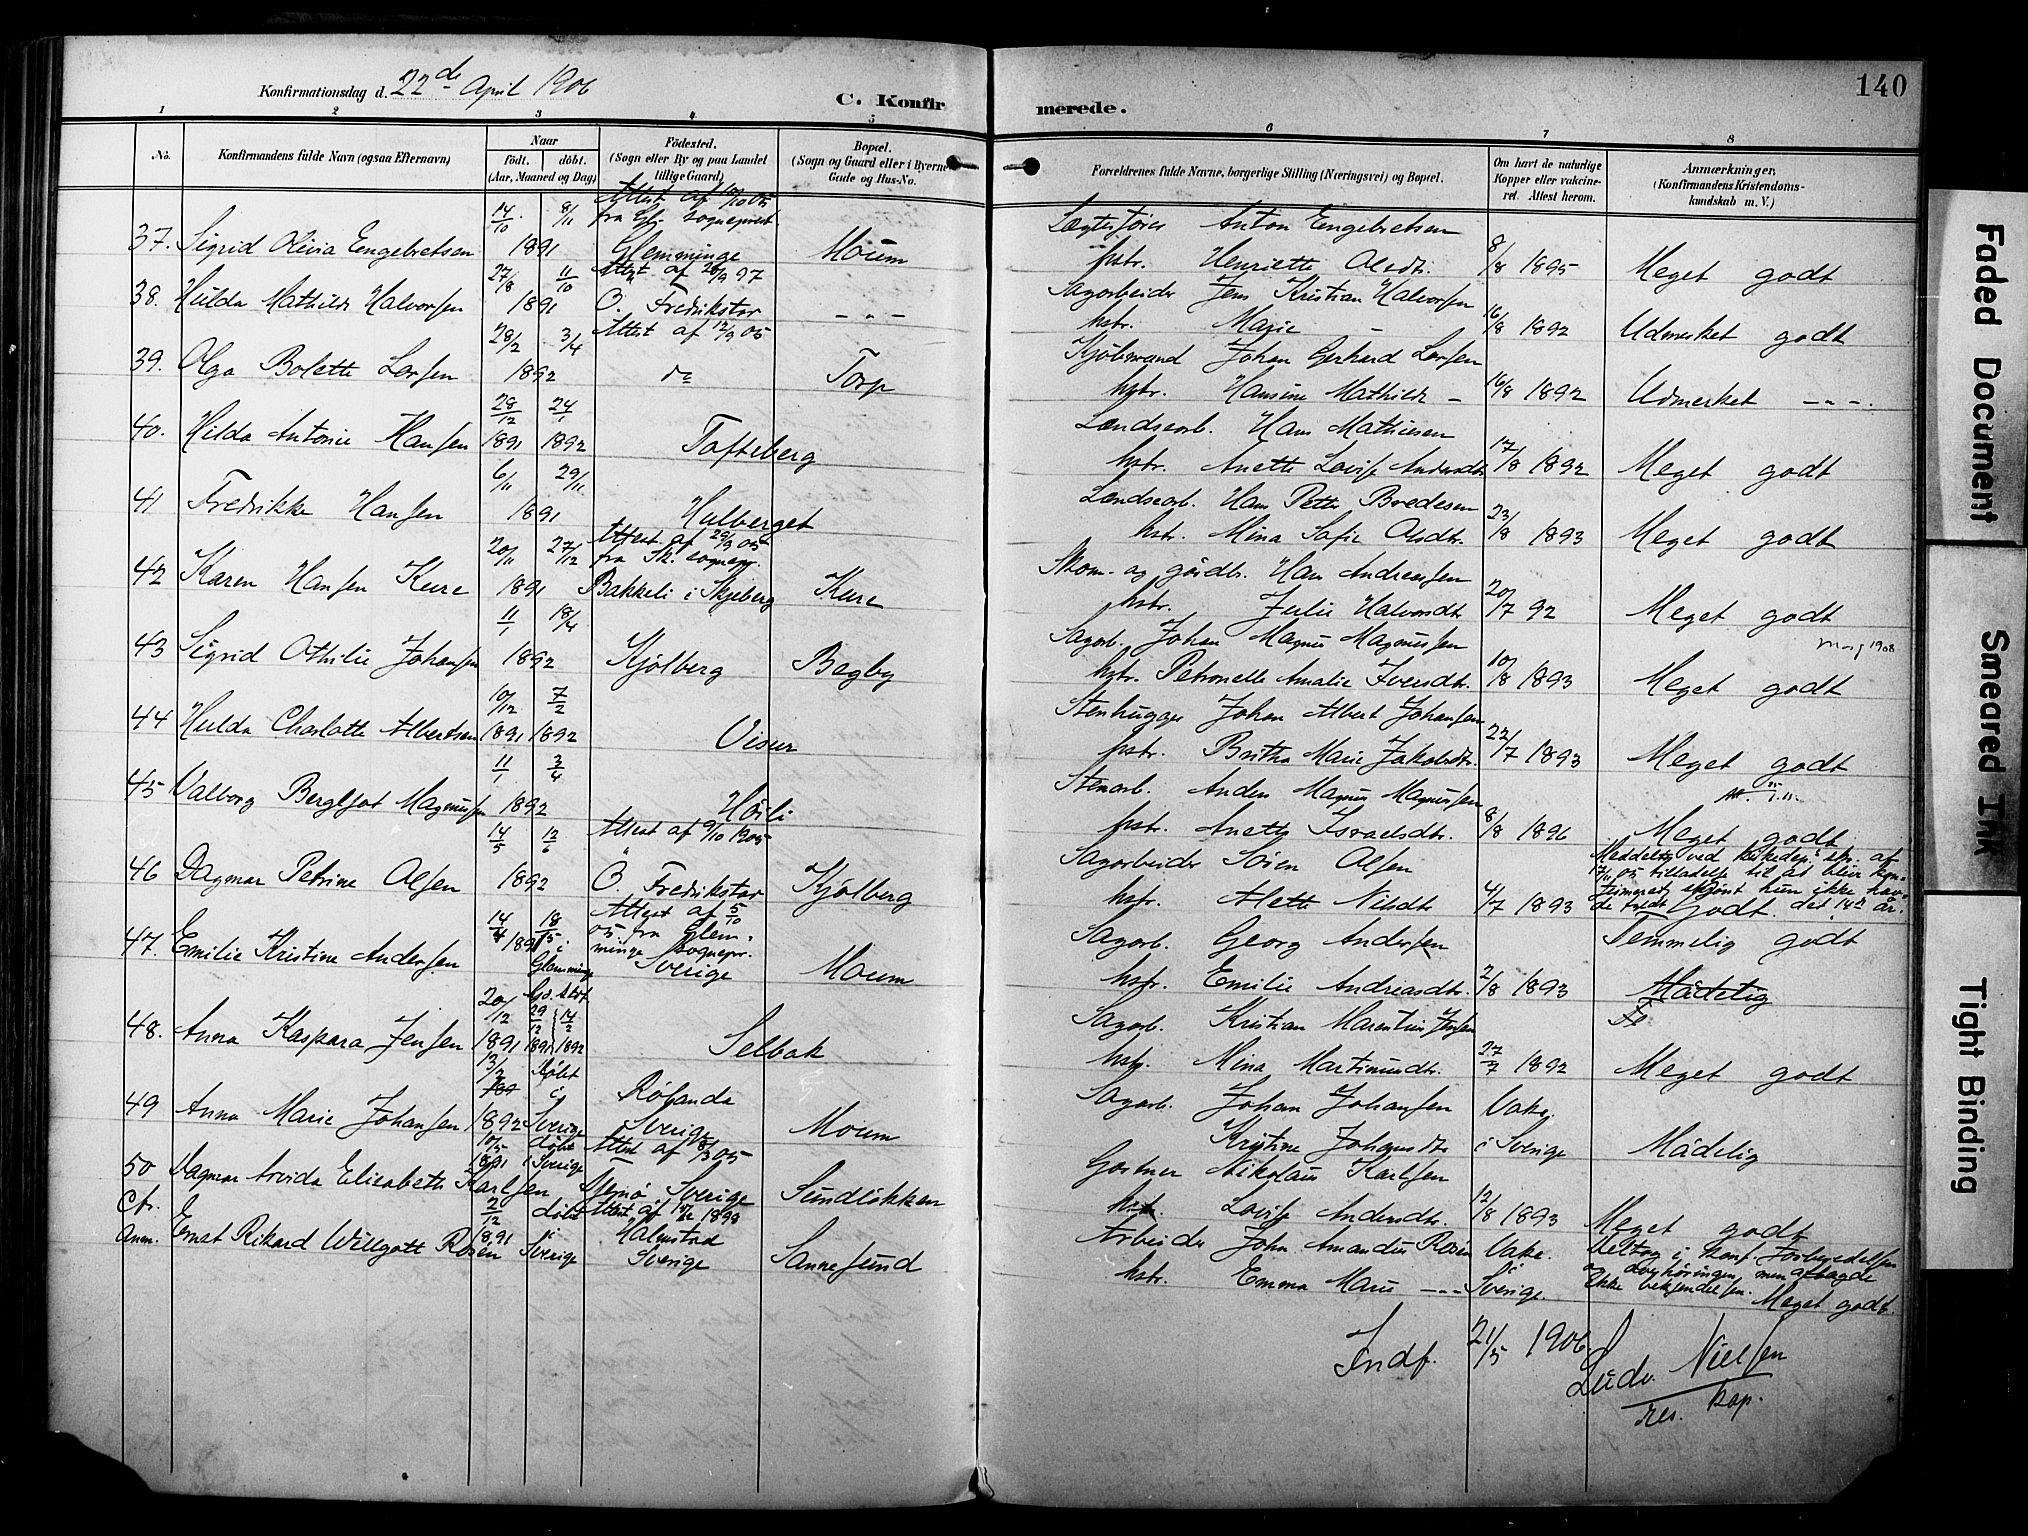 Konfirmationsdag d. 22de April 1906
C. Konfirmerede.
140
1 2 3 4 5 6 7 8
No.
Konfirmandens fulde Navn (ogsaa Efternavn)
Naar
födt. döbt.
(Aar, Maaned og Dag)
Födested.
(Sogn eller By og paa Landet
tillige Gaard)
Bopæl.
(Sogn og Gaard eller i Byerne
Gade og Hus-No.
Forældrenes fulde Navne, borgerlige Stilling (Næringsvei) og Bopæl.
Om havt de naturlige
Kopper eller vakcine-
ret. Attest herom.
Anmærkninger.
(Konfirmandens Kristendoms-
kundskab m. V.)
37. Sigrid Olivia Engebretsen 14/10 8/11 1891 Attest af 10/10 05 fra Gl. sogneprest Glemminge Moum
Anton Engebretsen
hstr. Henriette Olsdtr. 8/8 1895 Meget godt
38. Hulda Mathilde Halvorsen 27/8 11/10 1891 Ö. Fredrikstad - " -
Sagarbeider Jens Kristian Halvorsen
hstr. Marie - 16/8 1892 Udmerket godt
39. Olga Bolette Larsen 28/2 3/4 1892 Attest af 12/9 05 do Torp
Kjöbmand Johan Gerhard Larsen
hstr. Hansine Mathilde - 16/8 1892 Udmerket - " -
40. Hilda Antonie Hansen 28/12 1891 24/1 1892 Tofteberg
Landsearb. Hans Mathisen
hstr. Anette Lovise Andersdtr. 17/8 1892 Meget godt
41 Fredrikke Hansen 6/11 29/11 1891 Hulberget
Landsearb. Hans Petter Bredesen
hstr. Mina Sofie Olsdtr. 23/8 1893 Meget godt
42 Karen Hansen Kure 20/11 27/12 1891 Attest af 29/9 05 fra Sk. sognepr. Bakkeli i Skjeberg Kure
Skom. og gårdbr. Hans Andreasen
hstr. Julie Halvorsdtr. 20/7 92 Meget godt
43 Sigrid Othilie Johansen 11/1 18/4 1892 Kjölberg Begby
Sagarb. Johan Magnus Magnussen
hstr. Petronelle Amalie Iversdtr. 10/8 1893 Meget godt
44 Hulda Charlotte Albertsen 10/12 1891 7/2 1892 Visur
Stenhugger Johan Albert Johansen
hstr. Britha Marie Jakobsdtr. 22/7 1893 Meget godt
45 Valborg Bergljot Magnussen 11/1 3/4 1892 Höili
Stenarb. Anders Magnus Magnussen
hstr. Anette Israelsdtr. 8/8 1896 Meget godt
46 Dagmar Petrine Olsen 14/5 12/6 1892 Attest af 9/10 1905 Ö. Fredrikstad Kjölberg
Sagarbeider Sören Olsen
hstr. Alette Nilsdtr. 4/7 1893
Meddeltes ved kirkedep. skr. af
17/11 05 tilladelse til at blive kon-
firmeret, skjönt hun ikke hav-
de fyldt det 14de år.
Godt.
47. Emilie Kristine Andersen 14/4 1891 18/5 i Glemminge Attest af 5/10 05 fra Glem-
minge Sognepr. Sverige Moum
Sagarb. Georg Andersen Temmelig godt
hstr. Emilie Andreasdtr. 2/8 1893 Mådelig
48. Anna Kaspara Jensen 20/12 1891 29/12 1891 14/2 1892 Selbak
Sagarb. Kristian Martinius Jensen
hstr. Mina Martinusdtr. 27/7 1892 Meget godt
49 Anna Marie Johansen 13/2 1892 Döbt i Sverige Rölanda Sverige Moum
Sagarb. Johan Johansen Vakc.
Kristine Johannsdtr. i Sverige Mådelig
50 Dagmar Arvida Elisabeth Karlsen 10/5 1891 döbt i Sverige Attest af 8/3 05 Sverige Sundlökken
Gartner Nikolaus Karlsen
hstr. Lovise Andersdtr. 12/8 1893 Meget godt
Anm. Ernst Rikard Willgott Rosén 2/12 1891 döbt i Sverige Halmstad Sverige Sannesund
Arbeider John Amandus Rosén Vakc. i
hstr. Emma Marie - " - Sverige.
Deltog i konf. forberedelsen
og overhöringen, men aflagde
ikke bekjendelsen. Meget godt.
Indf. 21/5 1906
Ludv. Nielsen
res. kap.
Faded Document
Smeared Ink
Tight Binding